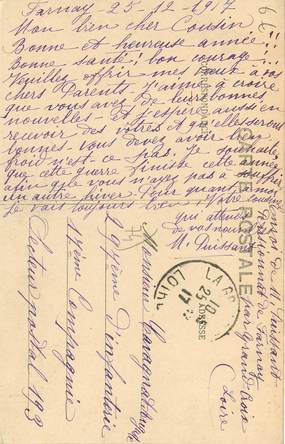 Farnay 25-12-1917
Mon bien cher Cousin
Bonne et heureuse année!!
Bonne santé! bon courage!!
Veuillez offrir mes vœux à vos
chers Parents J'aime à croire
que vous avez de leurs bonnes
nouvelles et j'espère aussi en
recevoir des vôtres et qu'elles seront
bonnes Vous devez avoir bien
froid n'est ce pas. Je souhaite
que cette guerre finisse cette année
afin que vous n'ayez pas à souffrir
un autre hiver. Pour quant à moi
je vais toujours bien. Votre cousine
qui attend
de vos nouvelles
M. Puissant
CARTE POSTALE
CORRESPONDANCE
ADRESSE
Envoi de M. Puissant
Pensionnat de Farnay
par Grand-Croix
(Loire)
LOIRE
17
Monsieur
d'infanterie
17ème Compagnie
Secteur postal 193